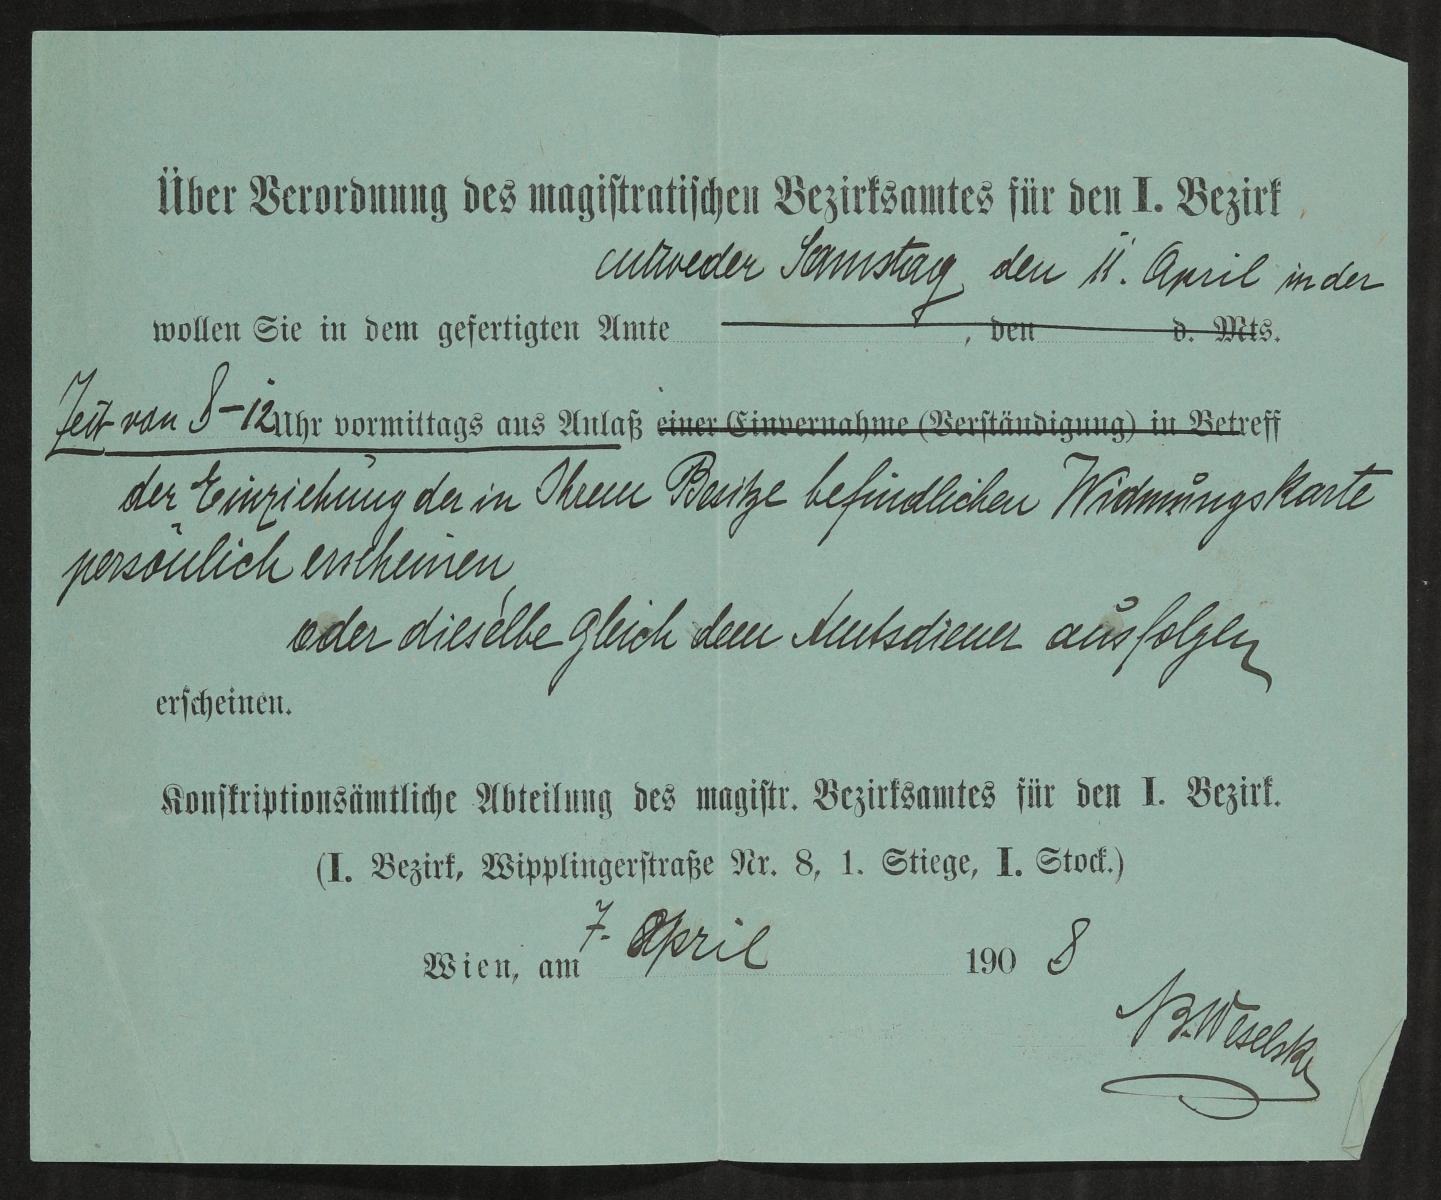 Über Verordnung des magistratischen Bezirksamtes für den I. Bezirk
entweder Samstag den 11. April in der
wollen Sie in dem gefertigten Amte , den d. Mts.
Zeit von 8-12 Uhr vormittags aus Anlaß einer Einvernahme (Verständigung) in Betreff
der Einziehung der in Ihrem Besitze befindlichen Widmungskarte
persönlich erscheinen,
oder dieselbe gleich dem Amtsdiener ausfolgen
erscheinen.
Konskriptionsämtliche Abteilung des magistr. Bezirksamtes für den I. Bezirk.
(I. Bezirk, Wipplingerstraße Nr. 8, 1. Stiege, I. Stock.)
Wien, am 7. April 1908